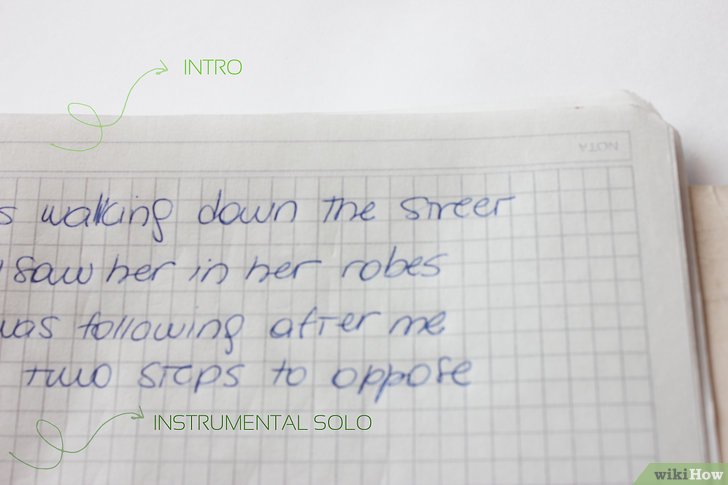 INTRO
NOTA
s walking down the street
saw her in her robes
was following after me
two steps to oppose
INSTRUMENTAL SOLO
wikiHow